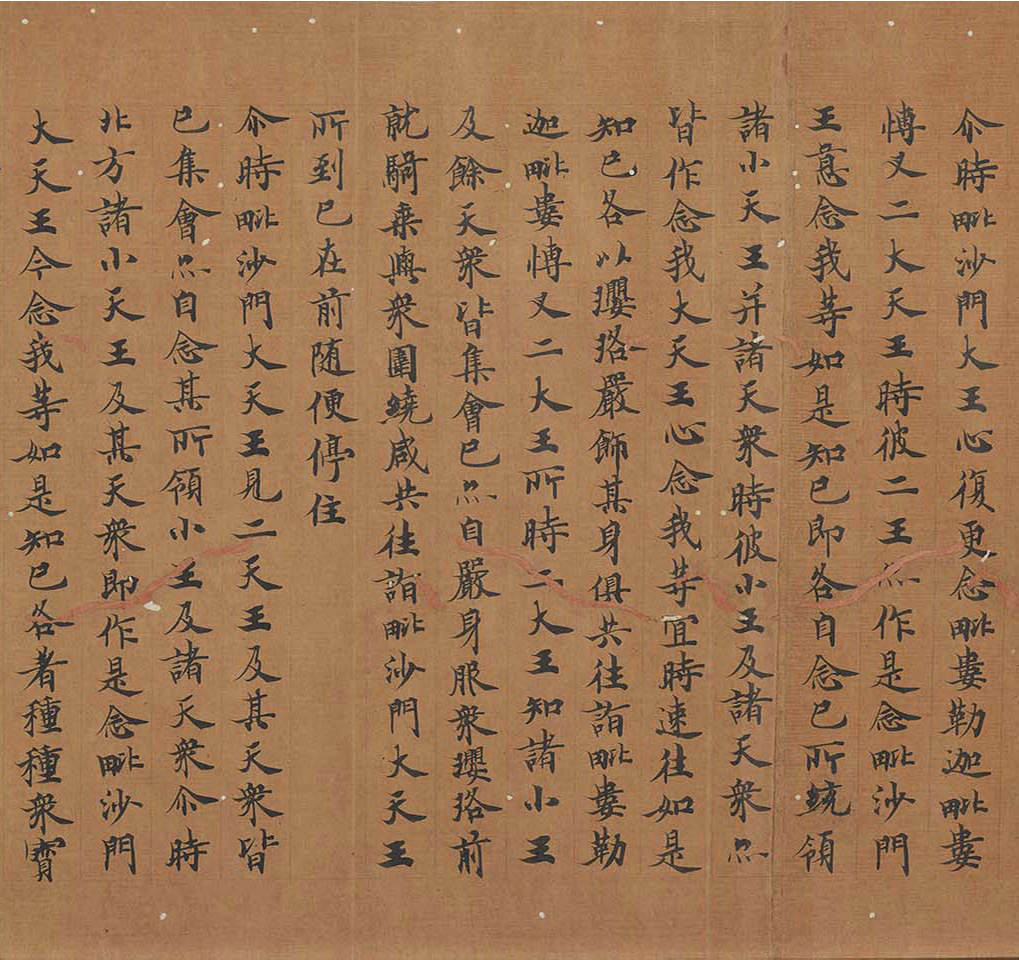 尒時毗沙門大王心復更念毗婁勒迦毗婁
愽叉二大天王時彼二王亦作是念毗沙門
王意念我䓁如是知已即各自念已所統領
諸小天王并諸天衆時彼小王及諸天衆亦
皆作念我大天王心念我䓁宜時速往如是
知已各以瓔珞嚴飾其身俱共往詣毗婁勒
迦毗婁愽叉二大王所時二大王知諸小王
及餘天衆皆集會已亦自嚴身服衆瓔珞前
就騎乘輿衆圍繞咸共往詣毗沙門大天王
所到已在前随便停住
尒時毗沙門大天王見二天王及其天衆皆
已集會亦自念其所領小王及諸天衆尒時
北方諸小天王及其天衆即作是念毗沙門
大天王今念我䓁如是知已各者種種衆寶